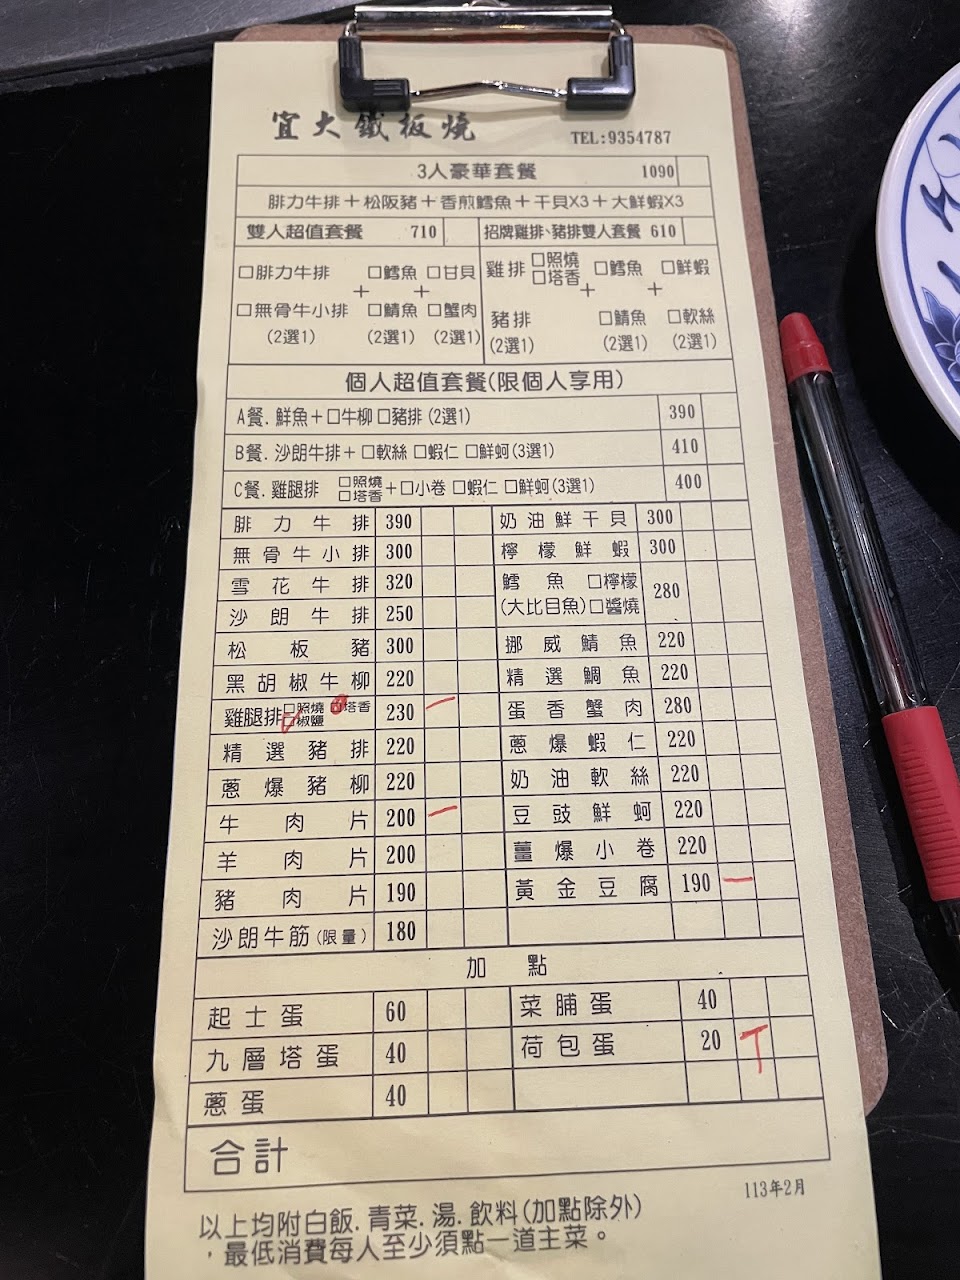 宜大鐵板燒 TEL:9354787
3人豪華套餐 1090
腓力牛排＋松阪豬＋香煎鱈魚＋干貝X3＋大鮮蝦X3
雙人超值套餐 710 招牌雞排、豬排雙人套餐 610
□腓力牛排 ＋ □鱈魚 ＋ □甘貝
□無骨牛小排 □鯖魚 □蟹肉
(2選1) (2選1) (2選1)
雞排 □照燒 □塔香 ＋ □鱈魚 ＋ □鮮蝦
豬排 □鯖魚 □軟絲
(2選1) (2選1) (2選1)
個人超值套餐(限個人享用)
A餐. 鮮魚＋□牛柳 □豬排 (2選1) 390
B餐. 沙朗牛排＋□軟絲 □蝦仁 □鮮蚵(3選1) 410
C餐. 雞腿排 □照燒 □塔香 ＋□小卷 □蝦仁 □鮮蚵(3選1) 400
腓力牛排 390
無骨牛小排 300
雪花牛排 320
沙朗牛排 250
松板豬 300
黑胡椒牛柳 220
雞腿排 □照燒 □塔香 □椒鹽 230 一
精選豬排 220
蔥爆豬柳 220
牛肉片 200 一
羊肉片 200
豬肉片 190
沙朗牛筋(限量) 180
奶油鮮干貝 300
檸檬鮮蝦 300
鱈魚 □檸檬 280
(大比目魚) □醬燒
挪威鯖魚 220
精選鯛魚 220
蛋香蟹肉 280
蔥爆蝦仁 220
奶油軟絲 220
豆豉鮮蚵 220
薑爆小卷 220
黃金豆腐 190 一
加點
起士蛋 60
九層塔蛋 40
蔥蛋 40
菜脯蛋 40
荷包蛋 20 T
合計
113年2月
以上均附白飯. 青菜. 湯. 飲料(加點除外)
，最低消費每人至少須點一道主菜。